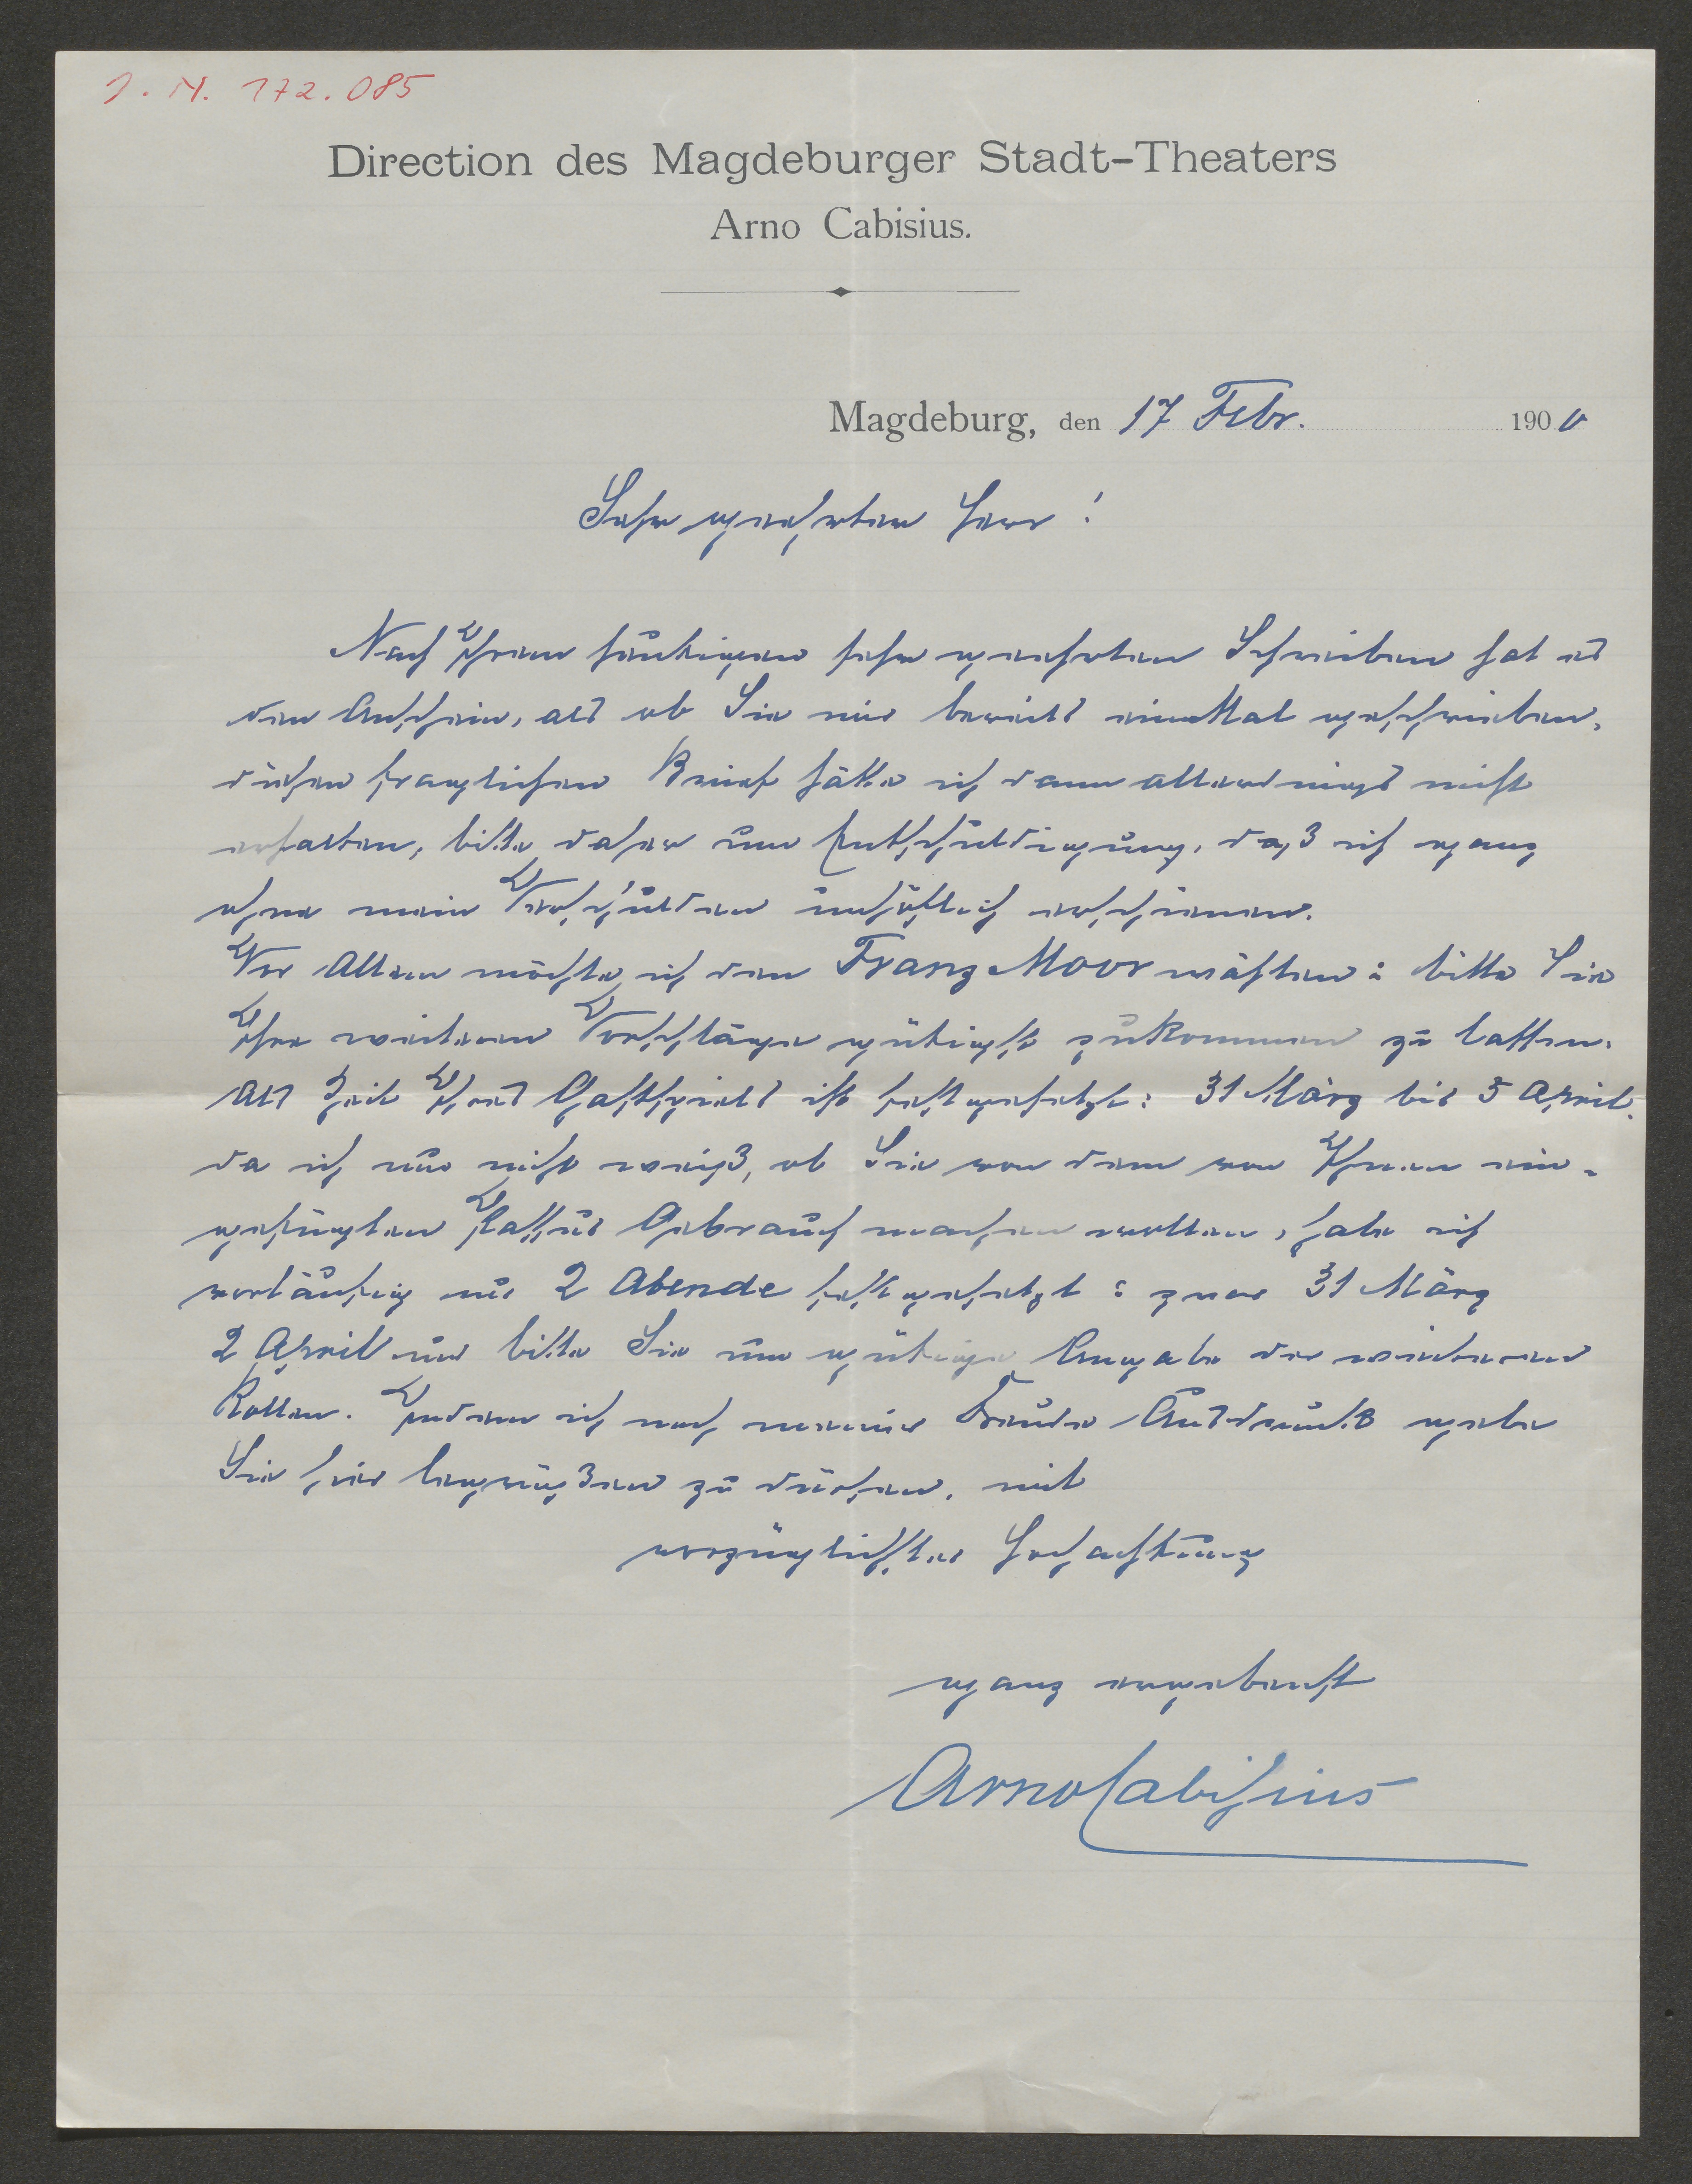 J. N. 172.085
Direction des Magdeburger Stadt-Theaters
Arno Cabisius.
Magdeburg, den 17 Febr. 1900
Sehr geehrter Herr!
Nach Ihrem heutigen sehr geehrten Schreiben hat es
den Anschein, als ob Sie mir bereits einMal geschrieben,
diesen fraglichen Brief hätte ich dann allerdings nicht
erhalten, bitte daher um Entschuldigung, daß ich ganz
ohne mein Verschulden unhöflich erschienen.
Vor Allem möchte ich den Franz Moor wählen u bitte Sie
Ihre weiteren Vorschläge gütigst zukommen zu lassen.
Als Zeit Ihres Gastspiels ist festgesetzt: 31 März bis 5 April.
da ich nun nicht weiß, ob Sie von dem von Ihnen ein-
gefügten Passus Gebrauch machen wollen, habe ich
vorläufig nur 2 Abende festgesetzt u zwar 31 März
2 April und bitte Sie um gütige Angabe der weiteren
Rollen. Indem ich noch meiner Freude Ausdruck gebe
Sie hier begrüßen zu dürfen, mit
vorzüglichster Hochachtung
ganz ergebenst
Arno Cabisius